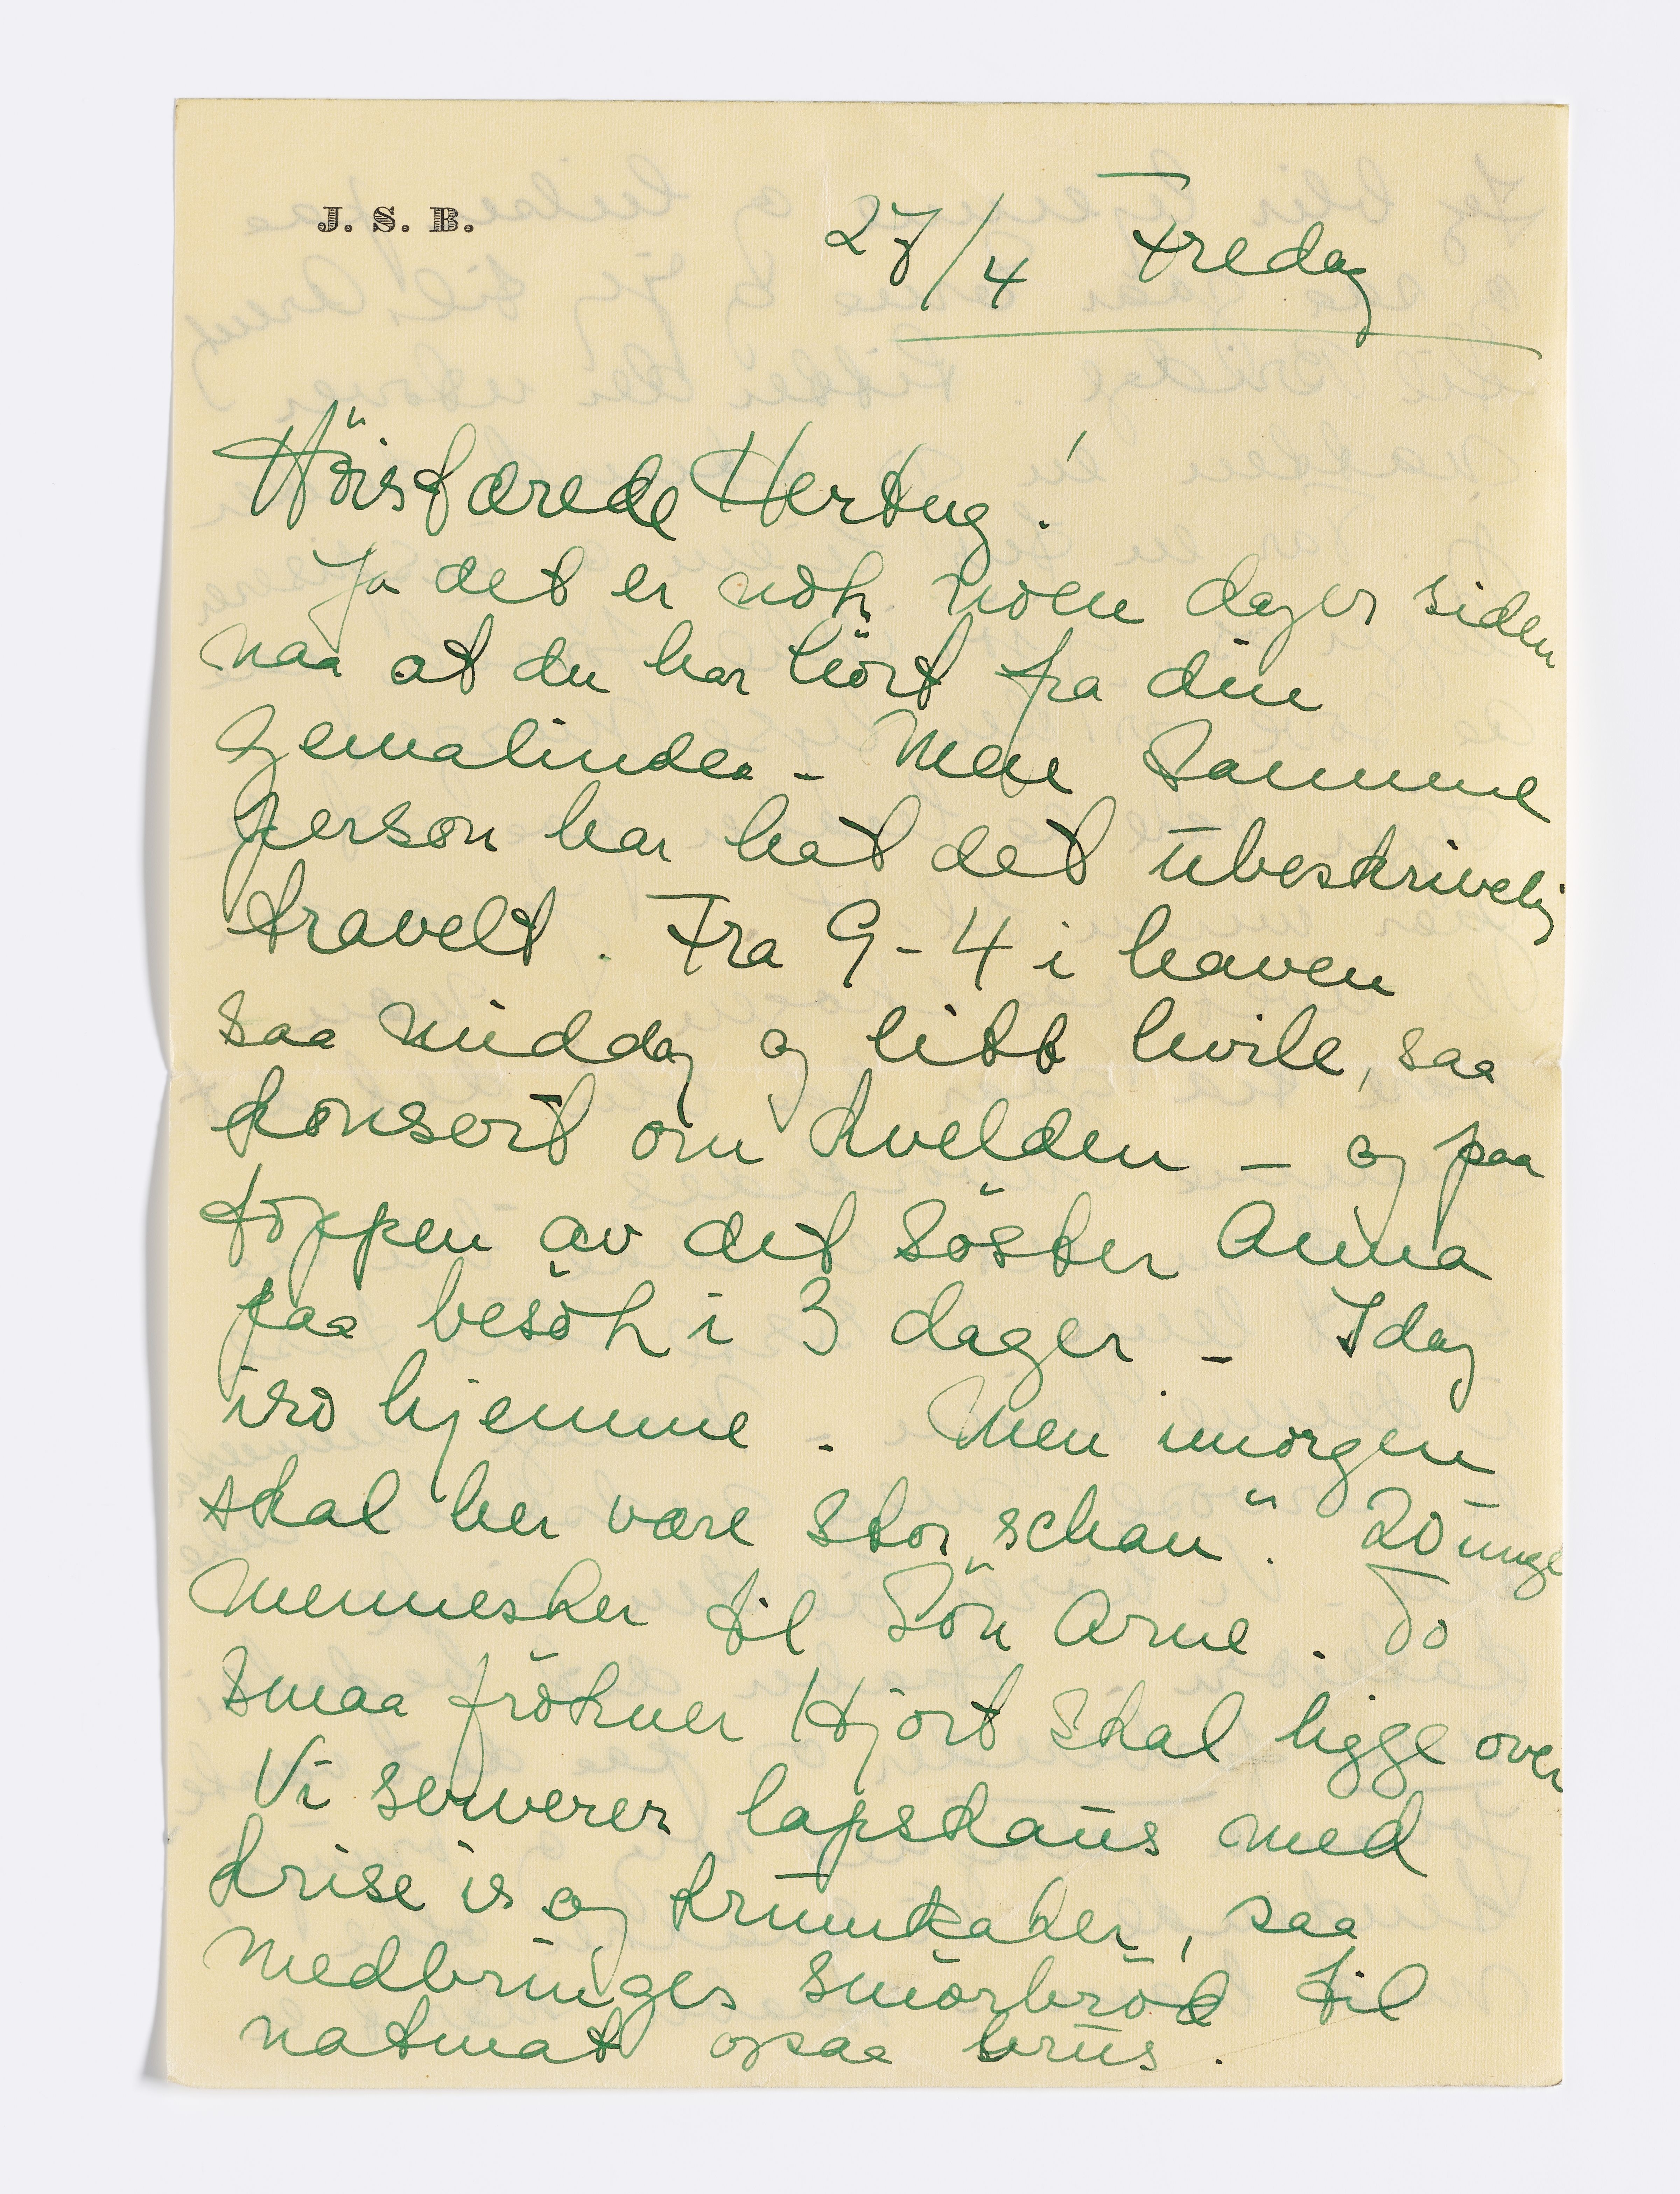 J. S. B.
27/4 Fredag
Höistærede Hertug!
Ja det er nok noen dager siden
naa at du har hört fra din
gemalinde. - Men samme
person har hat det ubeskrivelig
travelt. Fra 9-4 i haven
saa middag og litt hvile, saa
konsert om kvelden - og paa
toppen av det söster Anna
paa besök i 3 dager - Idag
iro hjemme. Men imorgen
skal her være stor „schau". 20 unge
mennesker til Sön Arne. To
smaa frökner Hjort skal ligge over
Vi serverer lapskaus med
krise is og krumkaker, saa
medbringes smörbröd til
natmat ogsaa brus.